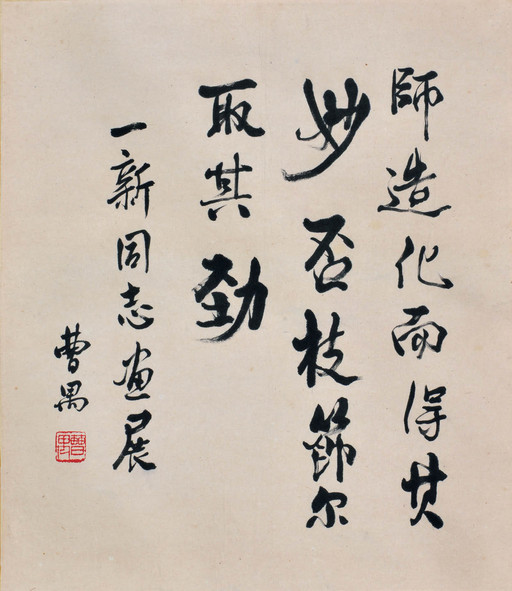 師造化而得其
妙否枝節尔
取其劲
一新同志画展
曹禺